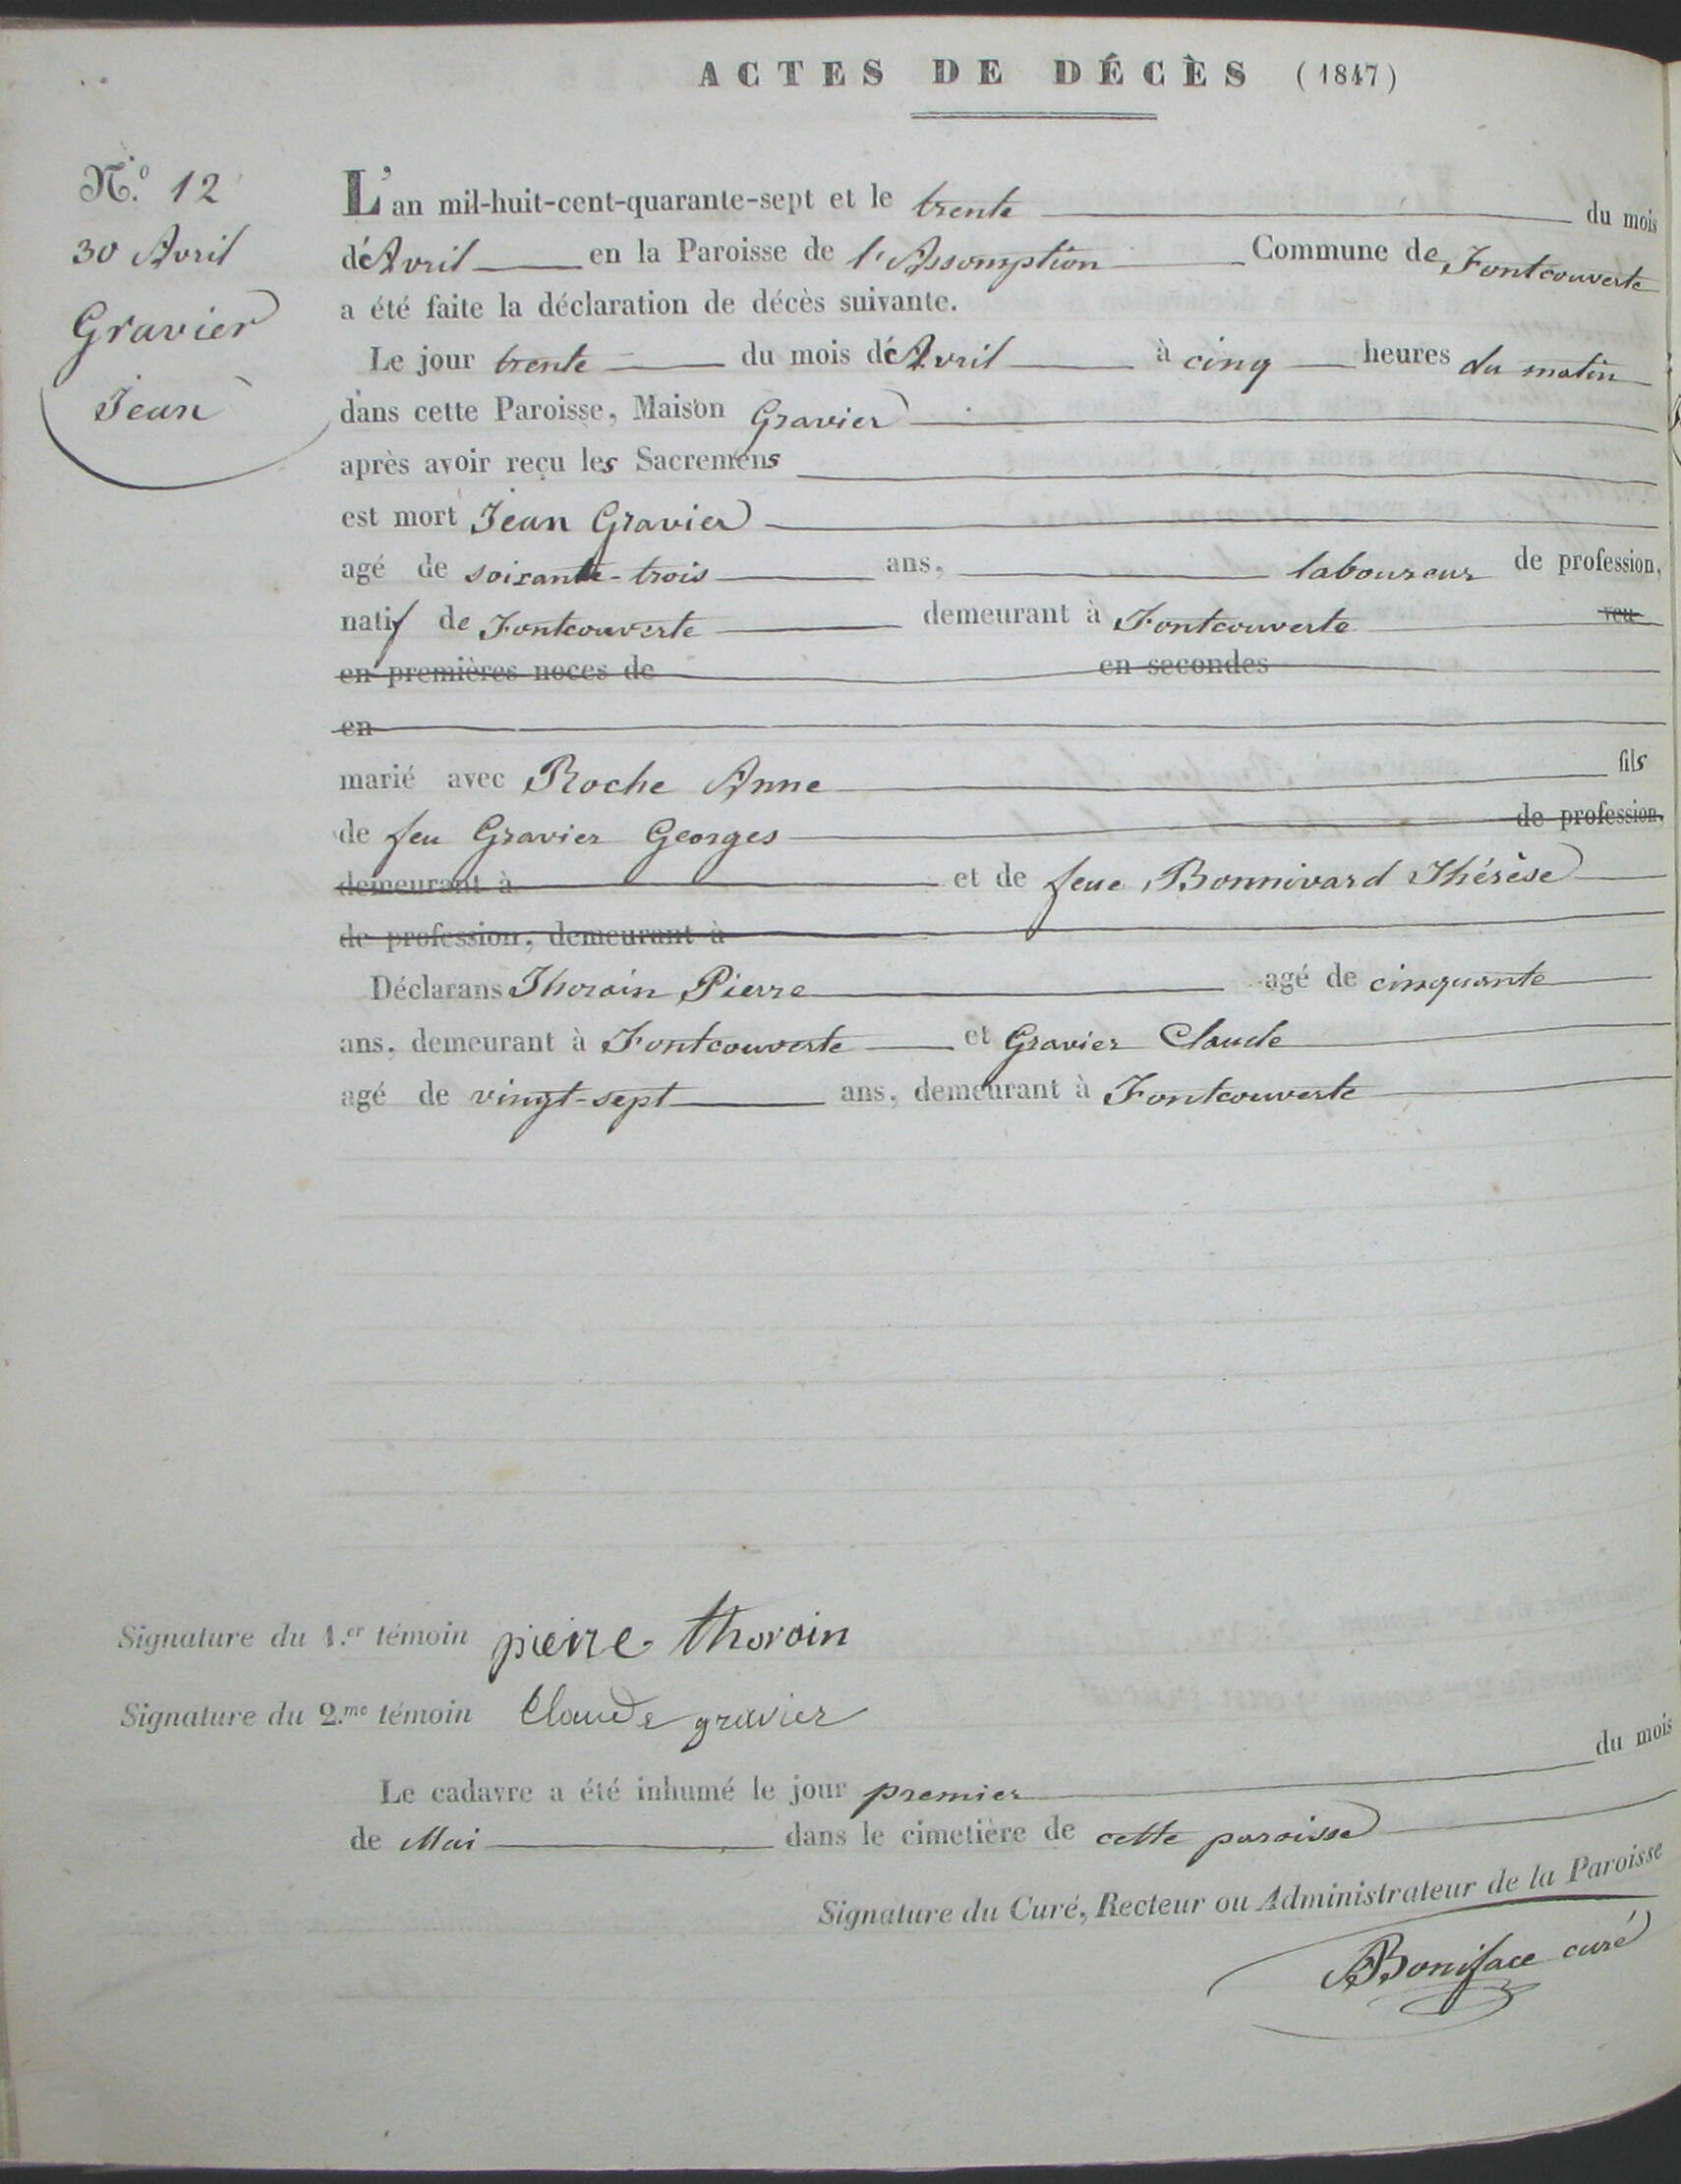 ACTES DE DÉCÈS (1847)
N.º 12
30 Avril
Gravier
Jean
L'an mil-huit-cent-quarante-sept et le trente du mois
d'Avril en la Paroisse de l'Assomption Commune de Fontcouverte
a été faite la déclaration de décès suivante.
Le jour trente du mois d'Avril à cinq heures du matin
dans cette Paroisse, Maison Gravier
après avoir reçu les Sacremens
est mort Jean Gravier
agé de soixante-trois ans, laboureur de profession,
natif de Fontcouverte demeurant à Fontcouverte veu
en premières noces de en secondes
en
marié avec Roche Anne fils
de feu Gravier Georges de profession,
demeurant à et de feue Bonnivard Thérèse
de profession, demeurant à
Déclarans Thorain Pierre agé de cinquante
ans, demeurant à Fontcouverte et Gravier Claude
agé de vingt-sept ans, demeurant à Fontcouverte
Signature du 1.er témoin pierre thorain
Signature du 2.me témoin Claude gravier
Le cadavre a été inhumé le jour premier du mois
de Mai dans le cimetière de cette paroisse
Signature du Curé, Recteur ou Administrateur de la Paroisse
Boniface curé